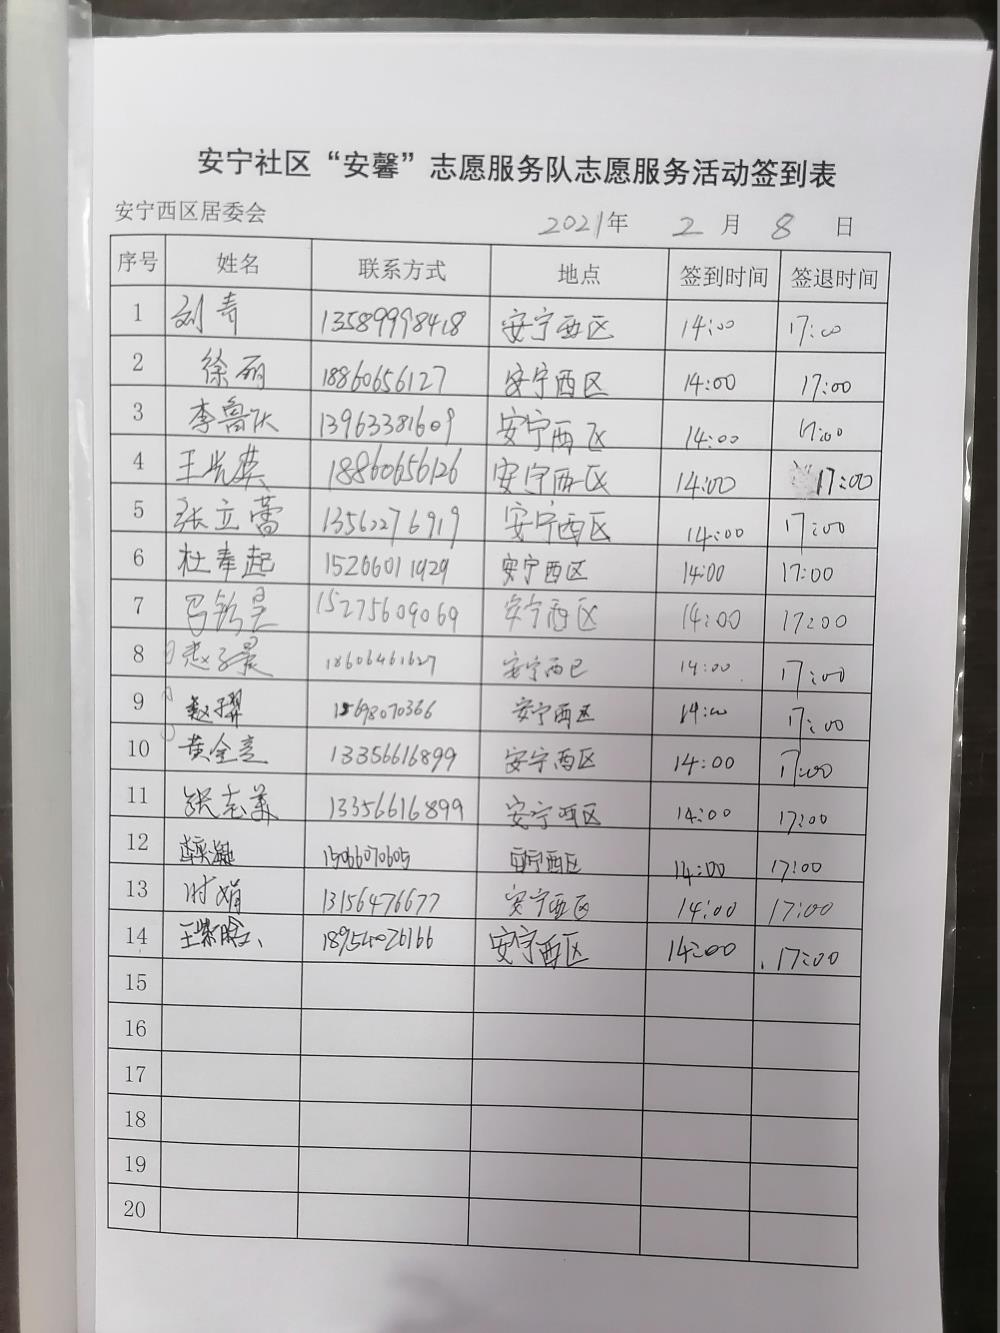 安宁社区“安馨”志愿服务队志愿服务活动签到表
安宁西区居委会 2021年 2 月 8 日
序号 姓名 联系方式 地点 签到时间 签退时间
1 刘青 13589998418 安宁西区 14:00 17:00
2 徐丽 18860656127 安宁西区 14:00 17:00
3 李鲁 13963381609 安宁西区 14:00 17:00
4 王 18860656126 安宁西区 14:00 17:00
5 张立蕾 13562276919 安宁西区 14:00 17:00
6 杜奉起 15266011929 安宁西区 14:00 17:00
7 15275609069 安宁西区 14:00 17:00
8 赵子晨 18606461627 安宁西区 14:00 17:00
9 赵子 15698070366 安宁西区 14:00 17:00
10 黄金亮 13356616899 安宁西区 14:00 17:00
11 张志美 13356616899 安宁西区 14:00 17:00
12 15066070605 安宁西区 14:00 17:00
13 时娟 13156476677 安宁西区 14:00 17:00
14 王紫晗 18954026166 安宁西区 14:00 17:00
15
16
17
18
19
20